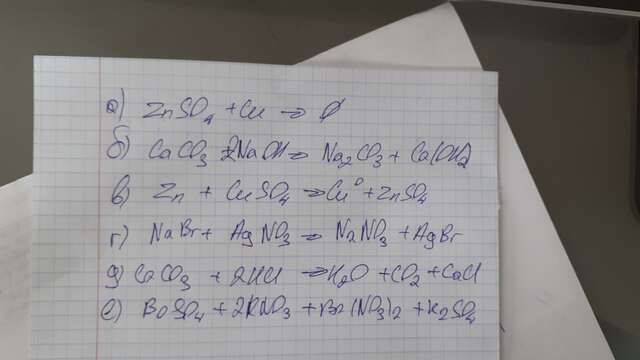 а) ZnSO₄ + Cu → ∅
б) CaCO₃ + 2NaOH → Na₂CO₃ + Ca(OH)₂
в) Zn + CuSO₄ → Cu⁰ + ZnSO₄
г) NaBr + AgNO₃ → N₂NO₃ + AgBr
д) CaCO₃ + 2HCl → H₂O + CO₂ + CaCl
е) BaSO₄ + 2KNO₃ + Ba(NO₃)₂ + K₂SO₄